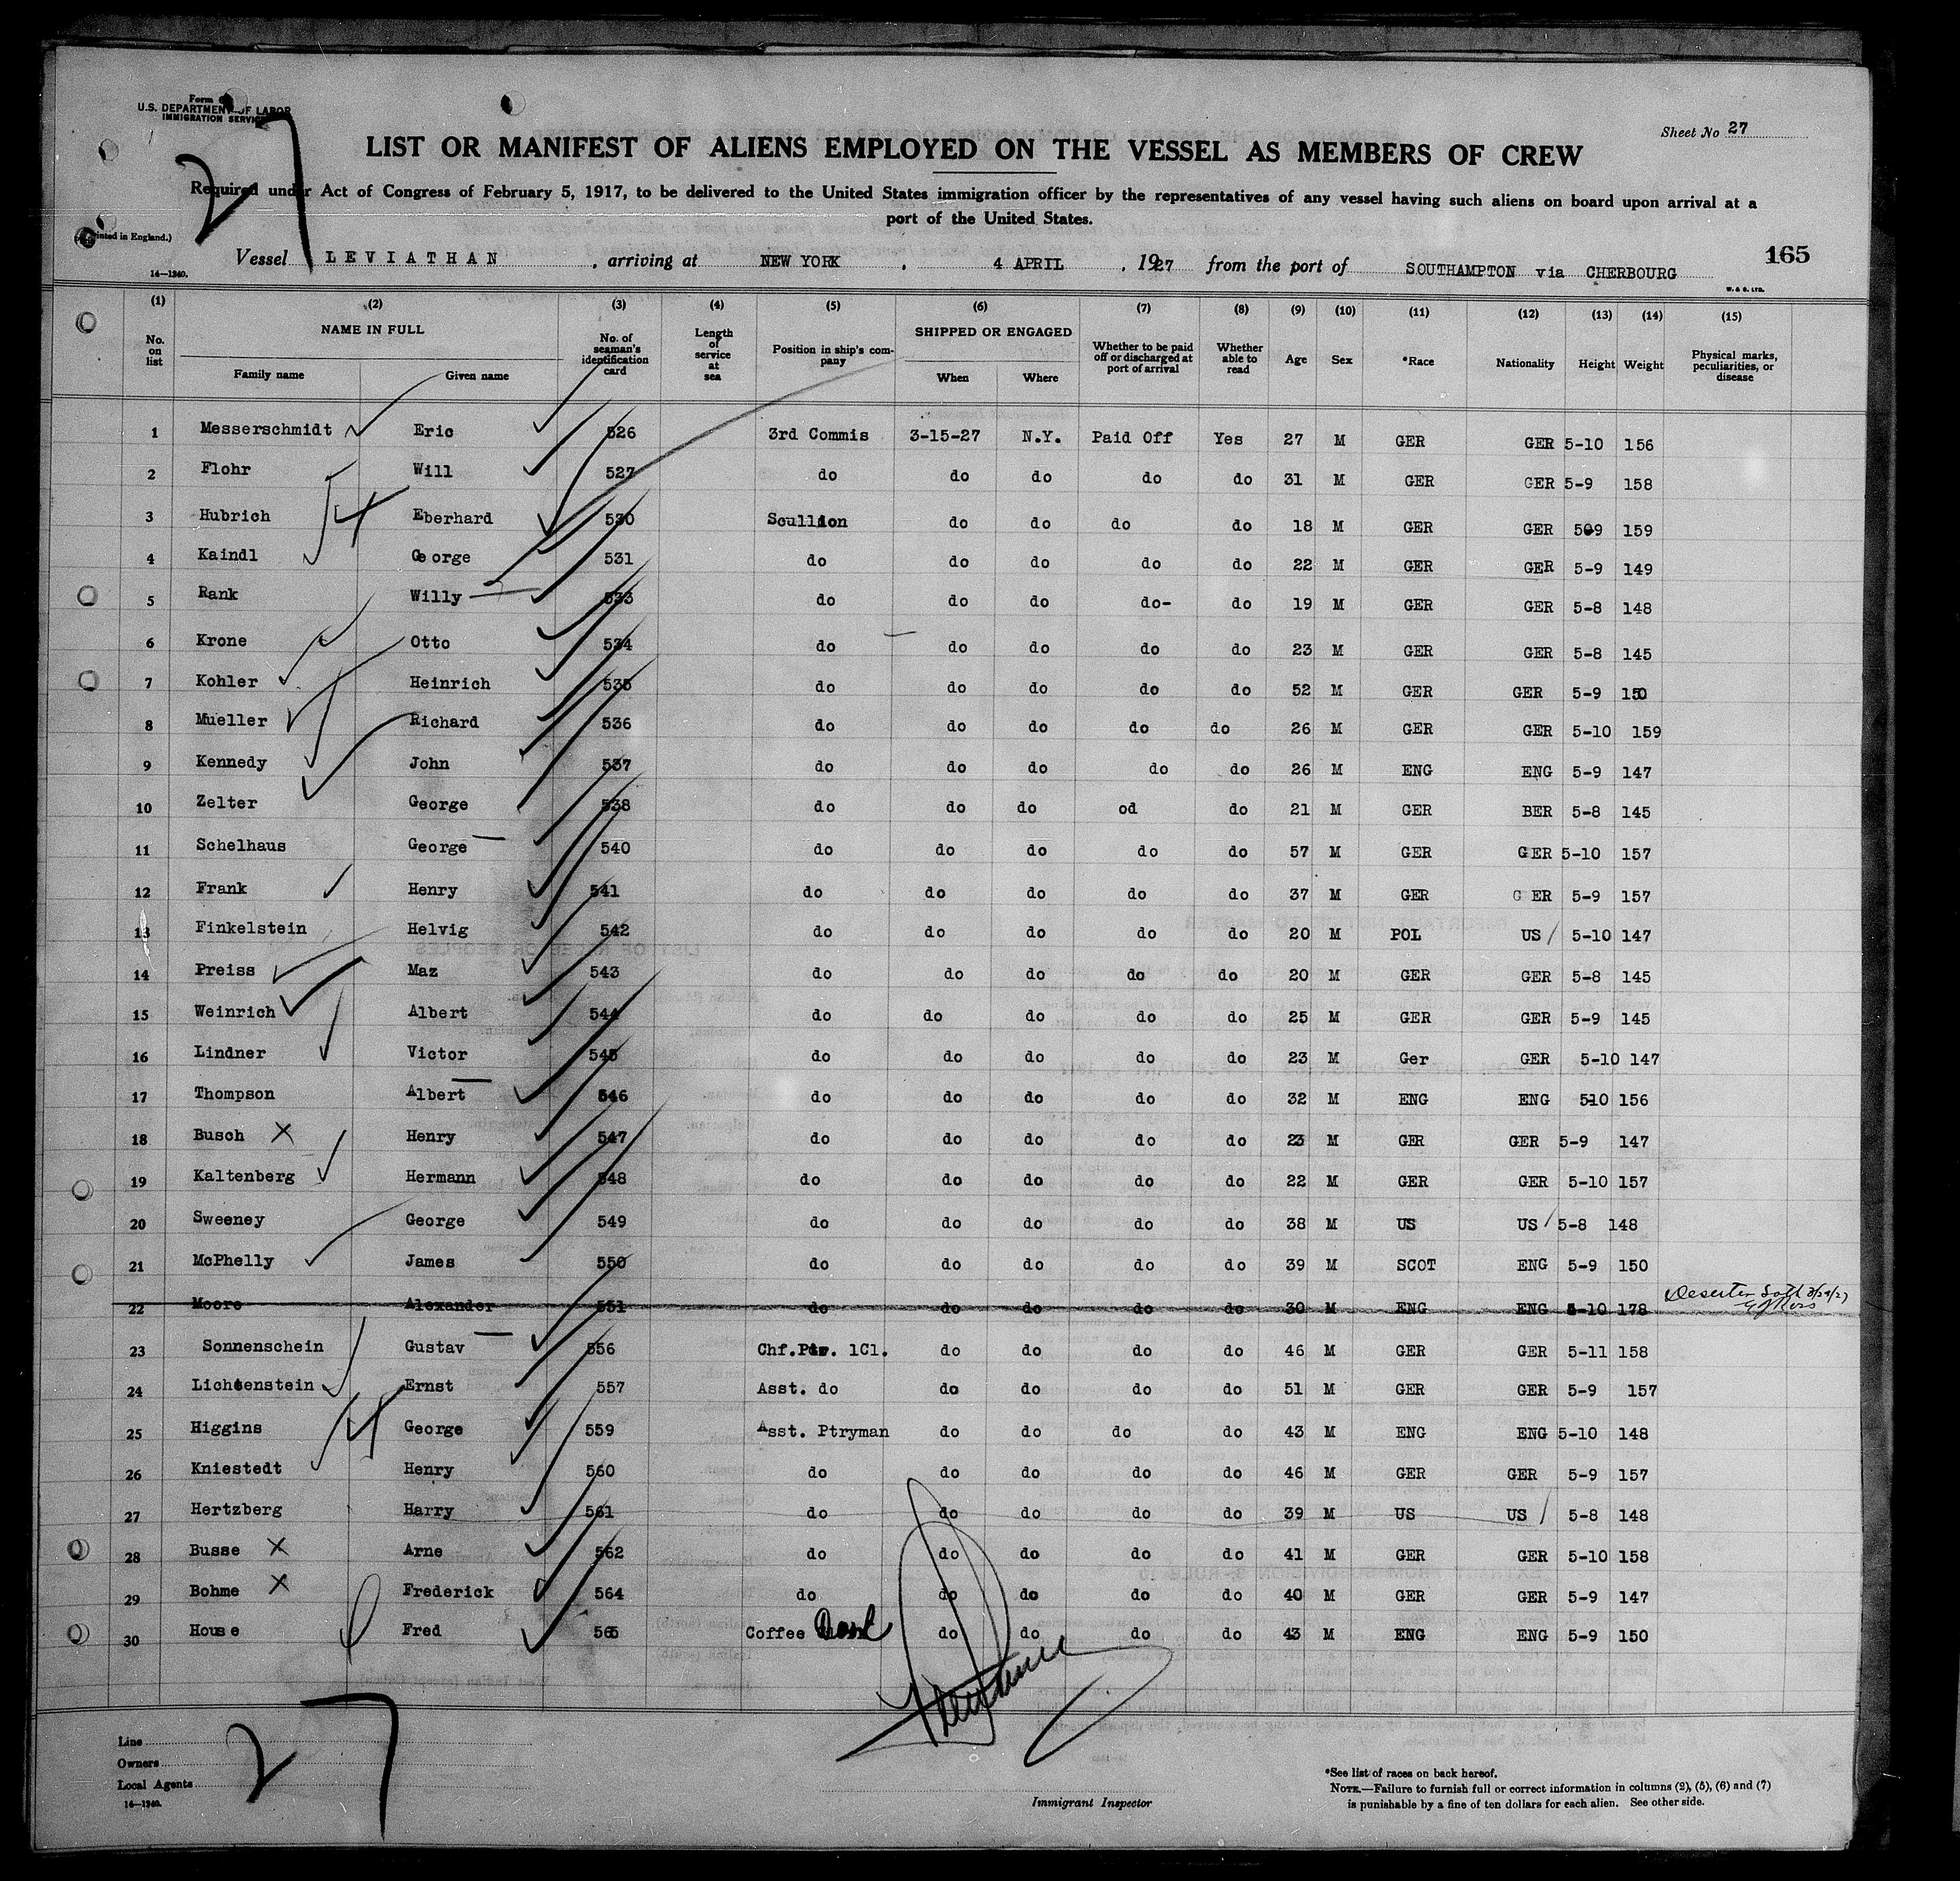 Form
U.S. DEPARTMENT OF LABOR
IMMIGRATION SERVICE
27
Sheet No 27
LIST OR MANIFEST OF ALIENS EMPLOYED ON THE VESSEL AS MEMBERS OF CREW
Required under Act of Congress of February 5, 1917, to be delivered to the United States immigration officer by the representatives of any vessel having such aliens on board upon arrival at a
port of the United States.
(Printed in England.)
165
Vessel LEVIATHAN , arriving at NEW YORK , 4 APRIL , 1927 from the port of SOUTHAMPTON via CHERBOURG
14—1240.
W. & S. LTD.
(1) (2) (3) (4) (5) (6) (7) (8) (9) (10) (11) (12) (13) (14) (15)
No. on list NAME IN FULL Family name Given name No. of seaman's identification card Length of service at sea Position in ship's company SHIPPED OR ENGAGED When Where Whether to be paid off or discharged at port of arrival Whether able to read Age Sex *Race Nationality Height Weight Physical marks, peculiarities, or disease
1 Messerschmidt Eric 526 3rd Commis 3-15-27 N.Y. Paid Off Yes 27 M GER GER 5-10 156
2 Flohr Will 527 do do do do do 31 M GER GER 5-9 158
3 Hubrich Eberhard 530 Scullion do do do do 18 M GER GER 5-9 159
4 Kaindl George 531 do do do do do 22 M GER GER 5-9 149
5 Rank Willy 533 do do do do- do 19 M GER GER 5-8 148
6 Krone Otto 534 do do do do do 23 M GER GER 5-8 145
7 Kohler Heinrich 535 do do do do do 52 M GER GER 5-9 150
8 Mueller Richard 536 do do do do do 26 M GER GER 5-10 159
9 Kennedy John 537 do do do do do 26 M ENG ENG 5-9 147
10 Zelter George 538 do do do od do 21 M GER BER 5-8 145
11 Schelhaus George 540 do do do do do 57 M GER GER 5-10 157
12 Frank Henry 541 do do do do do 37 M GER G ER 5-9 157
13 Finkelstein Helvig 542 do do do do do 20 M POL US 5-10 147
14 Preiss Maz 543 do do do do do 20 M GER GER 5-8 145
15 Weinrich Albert 544 do do do do do 25 M GER GER 5-9 145
16 Lindner Victor 545 do do do do do 23 M Ger GER 5-10 147
17 Thompson Albert 546 do do do do do 32 M ENG ENG 510 156
18 Busch X Henry 547 do do do do do 23 M GER GER 5-9 147
19 Kaltenberg Hermann 548 do do do do do 22 M GER GER 5-10 157
20 Sweeney George 549 do do do do do 38 M US US 5-8 148
21 McPhelly James 550 do do do do do 39 M SCOT ENG 5-9 150
22 Moore Alexander 551 do do do do do 30 M ENG ENG 5-10 178 Deserter
23 Sonnenschein Gustav 556 Chf.Ptr. 1Cl. do do do do 46 M GER GER 5-11 158
24 Lichtenstein Ernst 557 Asst. do do do do do 51 M GER GER 5-9 157
25 Higgins George 559 Asst. Ptryman do do do do 43 M ENG ENG 5-10 148
26 Kniestedt Henry 560 do do do do do 46 M GER GER 5-9 157
27 Hertzberg Harry 561 do do do do do 39 M US US 5-8 148
28 Busse X Arne 562 do do do do do 41 M GER GER 5-10 158
29 Bohme X Frederick 564 do do do do do 40 M GER GER 5-9 147
30 House Fred 565 Coffee do do do do 43 M ENG ENG 5-9 150
27
Line
Owners
Local Agents
14—1240.
Immigrant Inspector
*See list of races on back hereof.
NOTE.—Failure to furnish full or correct information in columns (2), (5), (6) and (7)
is punishable by a fine of ten dollars for each alien. See other side.